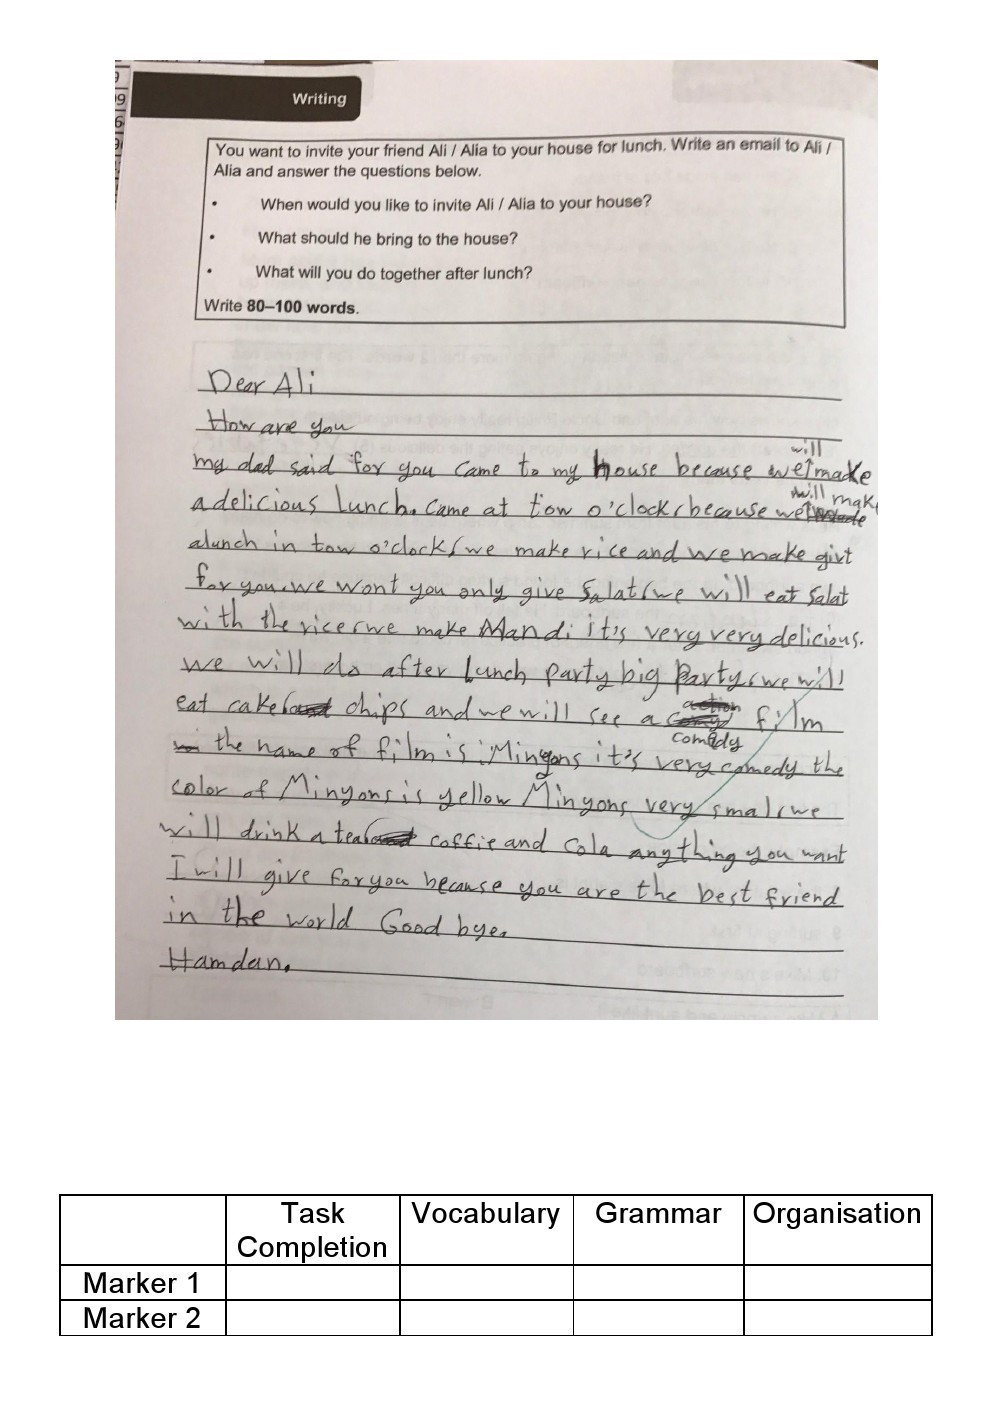 Writing
You want to invite your friend Ali / Alia to your house for lunch. Write an email to Ali /
Alia and answer the questions below.
• When would you like to invite Ali / Alia to your house?
• What should he bring to the house?
• What will you do together after lunch?
Write 80–100 words.
Dear Ali
How are you
will
my dad said for you came to my house because we make
a delicious lunch. came at tow o'clock, because we will make
alunch in tow o'clock, we make rice and we make givt
for you. we wont you only give Salat, we will eat Salat
with the rice, we make Mandi it's very very delicious.
we will do after lunch party big party, we will
eat cake, chips and we will see a comedy film
the name of film is: Minyons it's very comedy the
color of Minyons is yellow Minyons very smal, we
will drink a tea, coffie and cola anything you want
I will give for you because you are the best friend
in the world Good bye.
Hamdan.
Task Completion Vocabulary Grammar Organisation
Marker 1
Marker 2